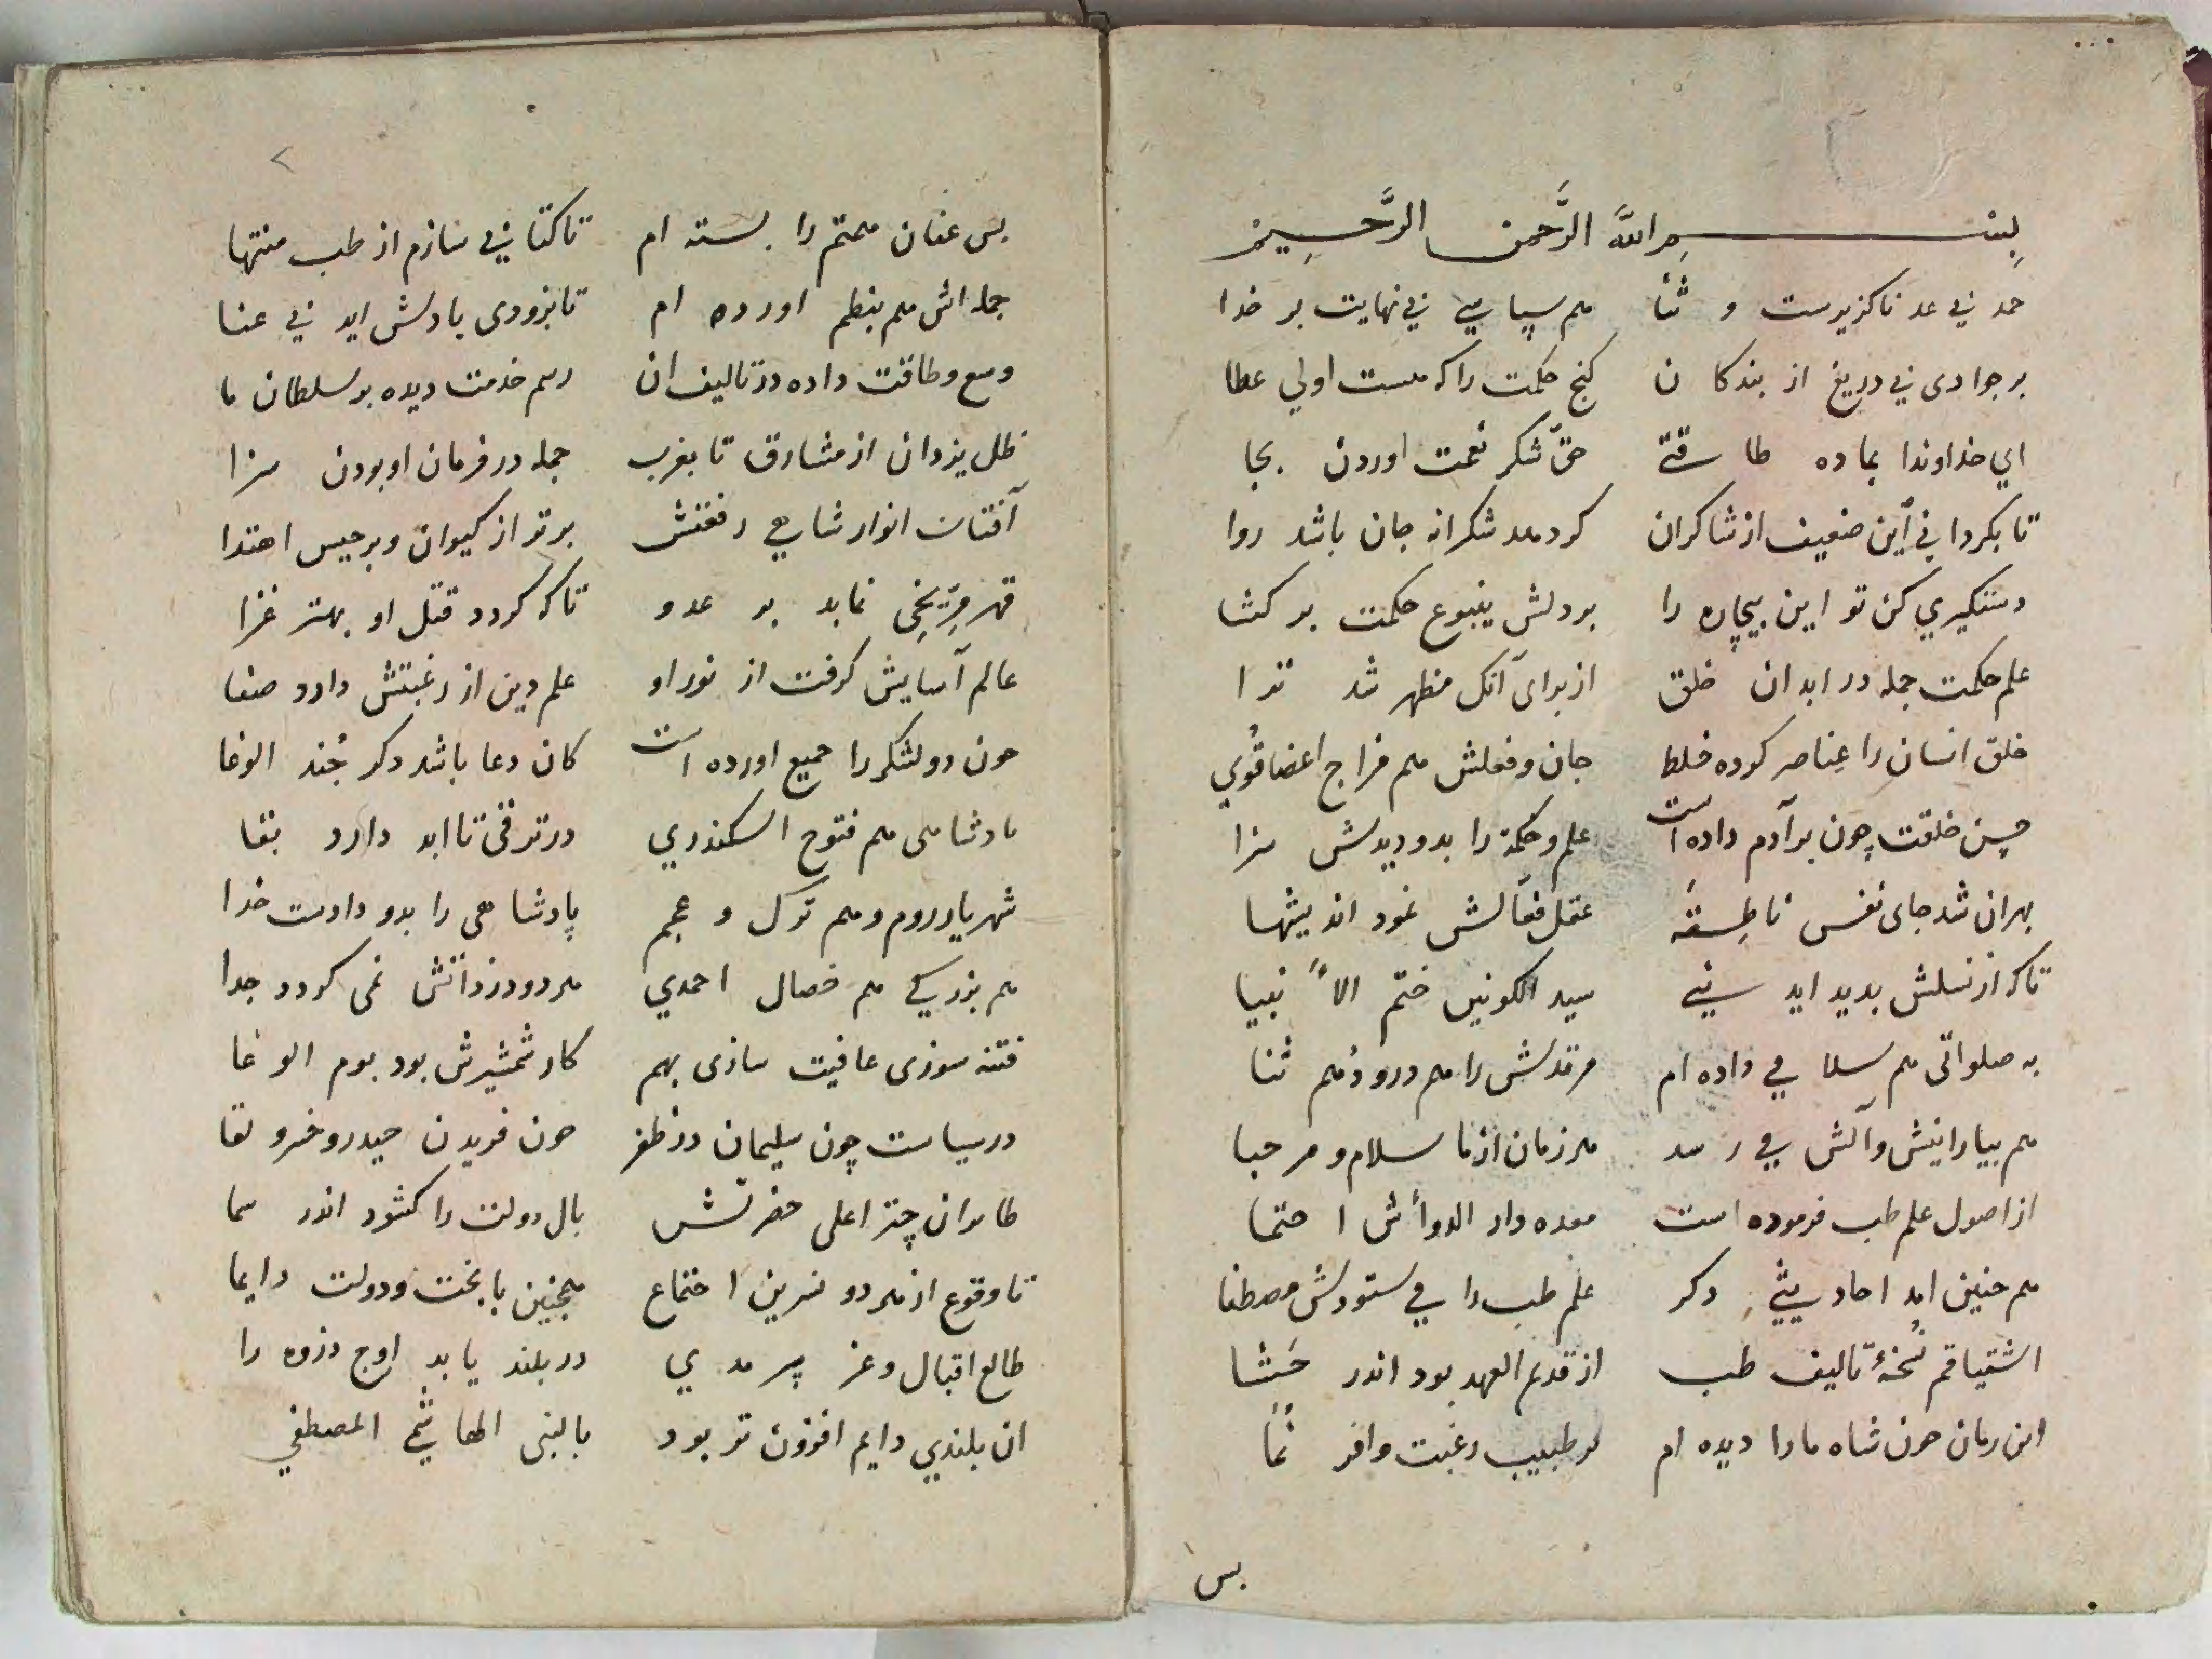 بسم الله الرَّحمن الرَّحیم
حمد بی عد ناکزیرست و ثنا هم سپاسی بی نهایت بر خدا
بر جوادی بی دریغ از بندکان کنج حکمت را که هست اولی عطا
ای خداوندا بما ده طاقتی حق شکر نعمت اوردن بجا
تا بکردانی این ضعیف از شاکران کرد شکرانه جان باشد روا
دستکیری کن تو این بیچاره را بر دلش ینبوع حکمت بر کشا
علم حکمت جمله در ابدان خلق از برای آنک مظهر شد ترا
خلق انسان را عناصر کرده خلط جان و فعلش هم مزاج اعضا قُوی
حسن خلقت چون بر آدم داده است علم و حکمة را بدو دیدش سزا
بهر ان شد جای نفس ناطقه عقل فعّالش نمود اندیشها
تا که از نسلش بدید اید نبی سید الکونین ختم الأنبیا
به صلواتی هم سلامی داده ام مرقدش را هم درود و هم ثنا
هم بیارانش و آلش می رسد هر زمان از ما سلام و مرحبا
از اصول علم طب فرموده است معده دار الدوأش احتما
هم چنین امد احادیثی دکر علم طب را می ستودش مصطفا
اشتیاقم نُسخهٔ تالیف طب از قدیم العهد بود اندر حَشا
این زمان چون شاه ما را دیده ام بر طبیب رغبت وافر نما
بس
بس عنان همتم را بسته ام تا کتابی سازم از طب منتها
جمله اش هم بنظم اورده ام تا بزودی یادش اید بی عنا
وسع و طاقت داده در تالیف ان رسم خدمت دیده بر سلطان ما
ظل یزدان از مشارق تا بغرب جمله در فرمان او بودن سزا
آفتاب انوار شاهی رفعتش برتر از کیوان و برجیس اهتدا
قهر مرّیخی نماید بر عدو تا که کردد قتل او بهتر غزا
عالم آسایش کرفت از نور او علم دین از رغبتش دارد صفا
چون دو لشکر را جمیع اورده است کان دعا باشد دکر جُند الوغا
پادشاهی هم فتوح اسکندری در ترقی تا ابد دارد بقا
شهریار روم و هم ترک و عجم پادشاهی را بدو دادست خدا
هم بزرکی هم خصال احمدی هر دو در ذاتش نمی کردد جدا
فتنه سوزی عافیت سازی بهم کار شمشیرش بود یوم الوغا
در سیاست چون سلیمان در ظفر چون فریدن حیدر و خسرو لقا
طایران چتر اعلی حضرتش بال دولت را کشود اندر سما
تا وقوع از هر دو نسرین اجتماع همچنین با بخت و دولت دایما
طالع اقبال و عز سرمدی در بلند یابد اوج ذروه را
ان بلندی دایم افزون تر بود بالنبی الهاشمی المصطفی